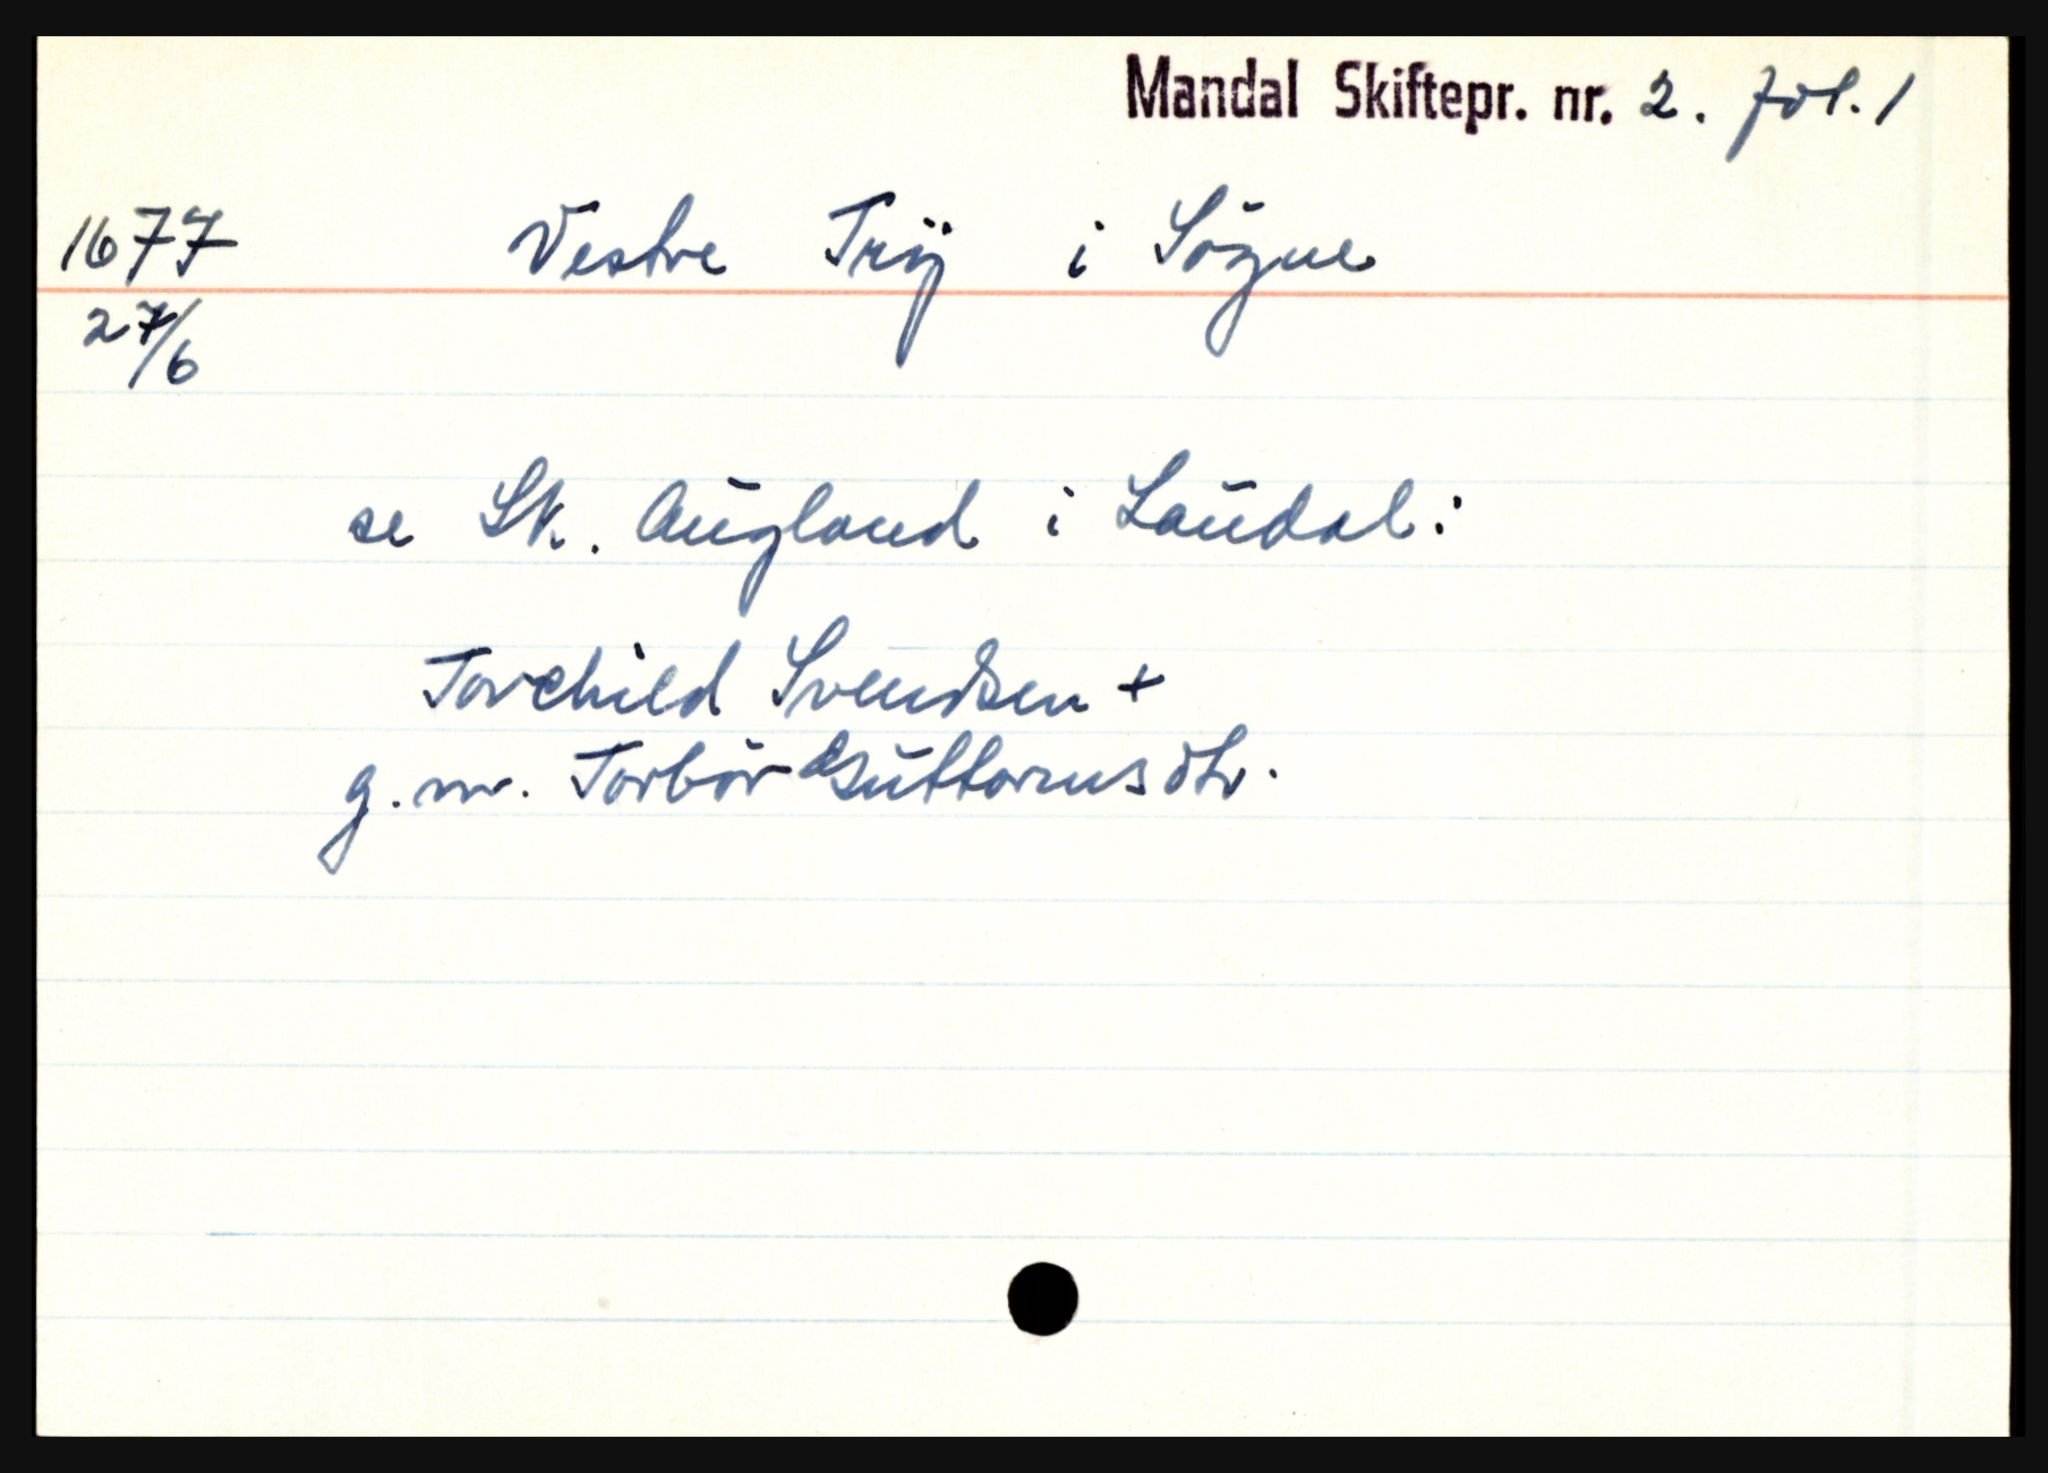 Mandal Skiftepr. nr. 2. fol. 1
1677 Vestre Trij i Sögne
27/6
se Sk. Augland i Laudal:
Torchild Svendsen +
g. m. Torbör Guttormsdtr.